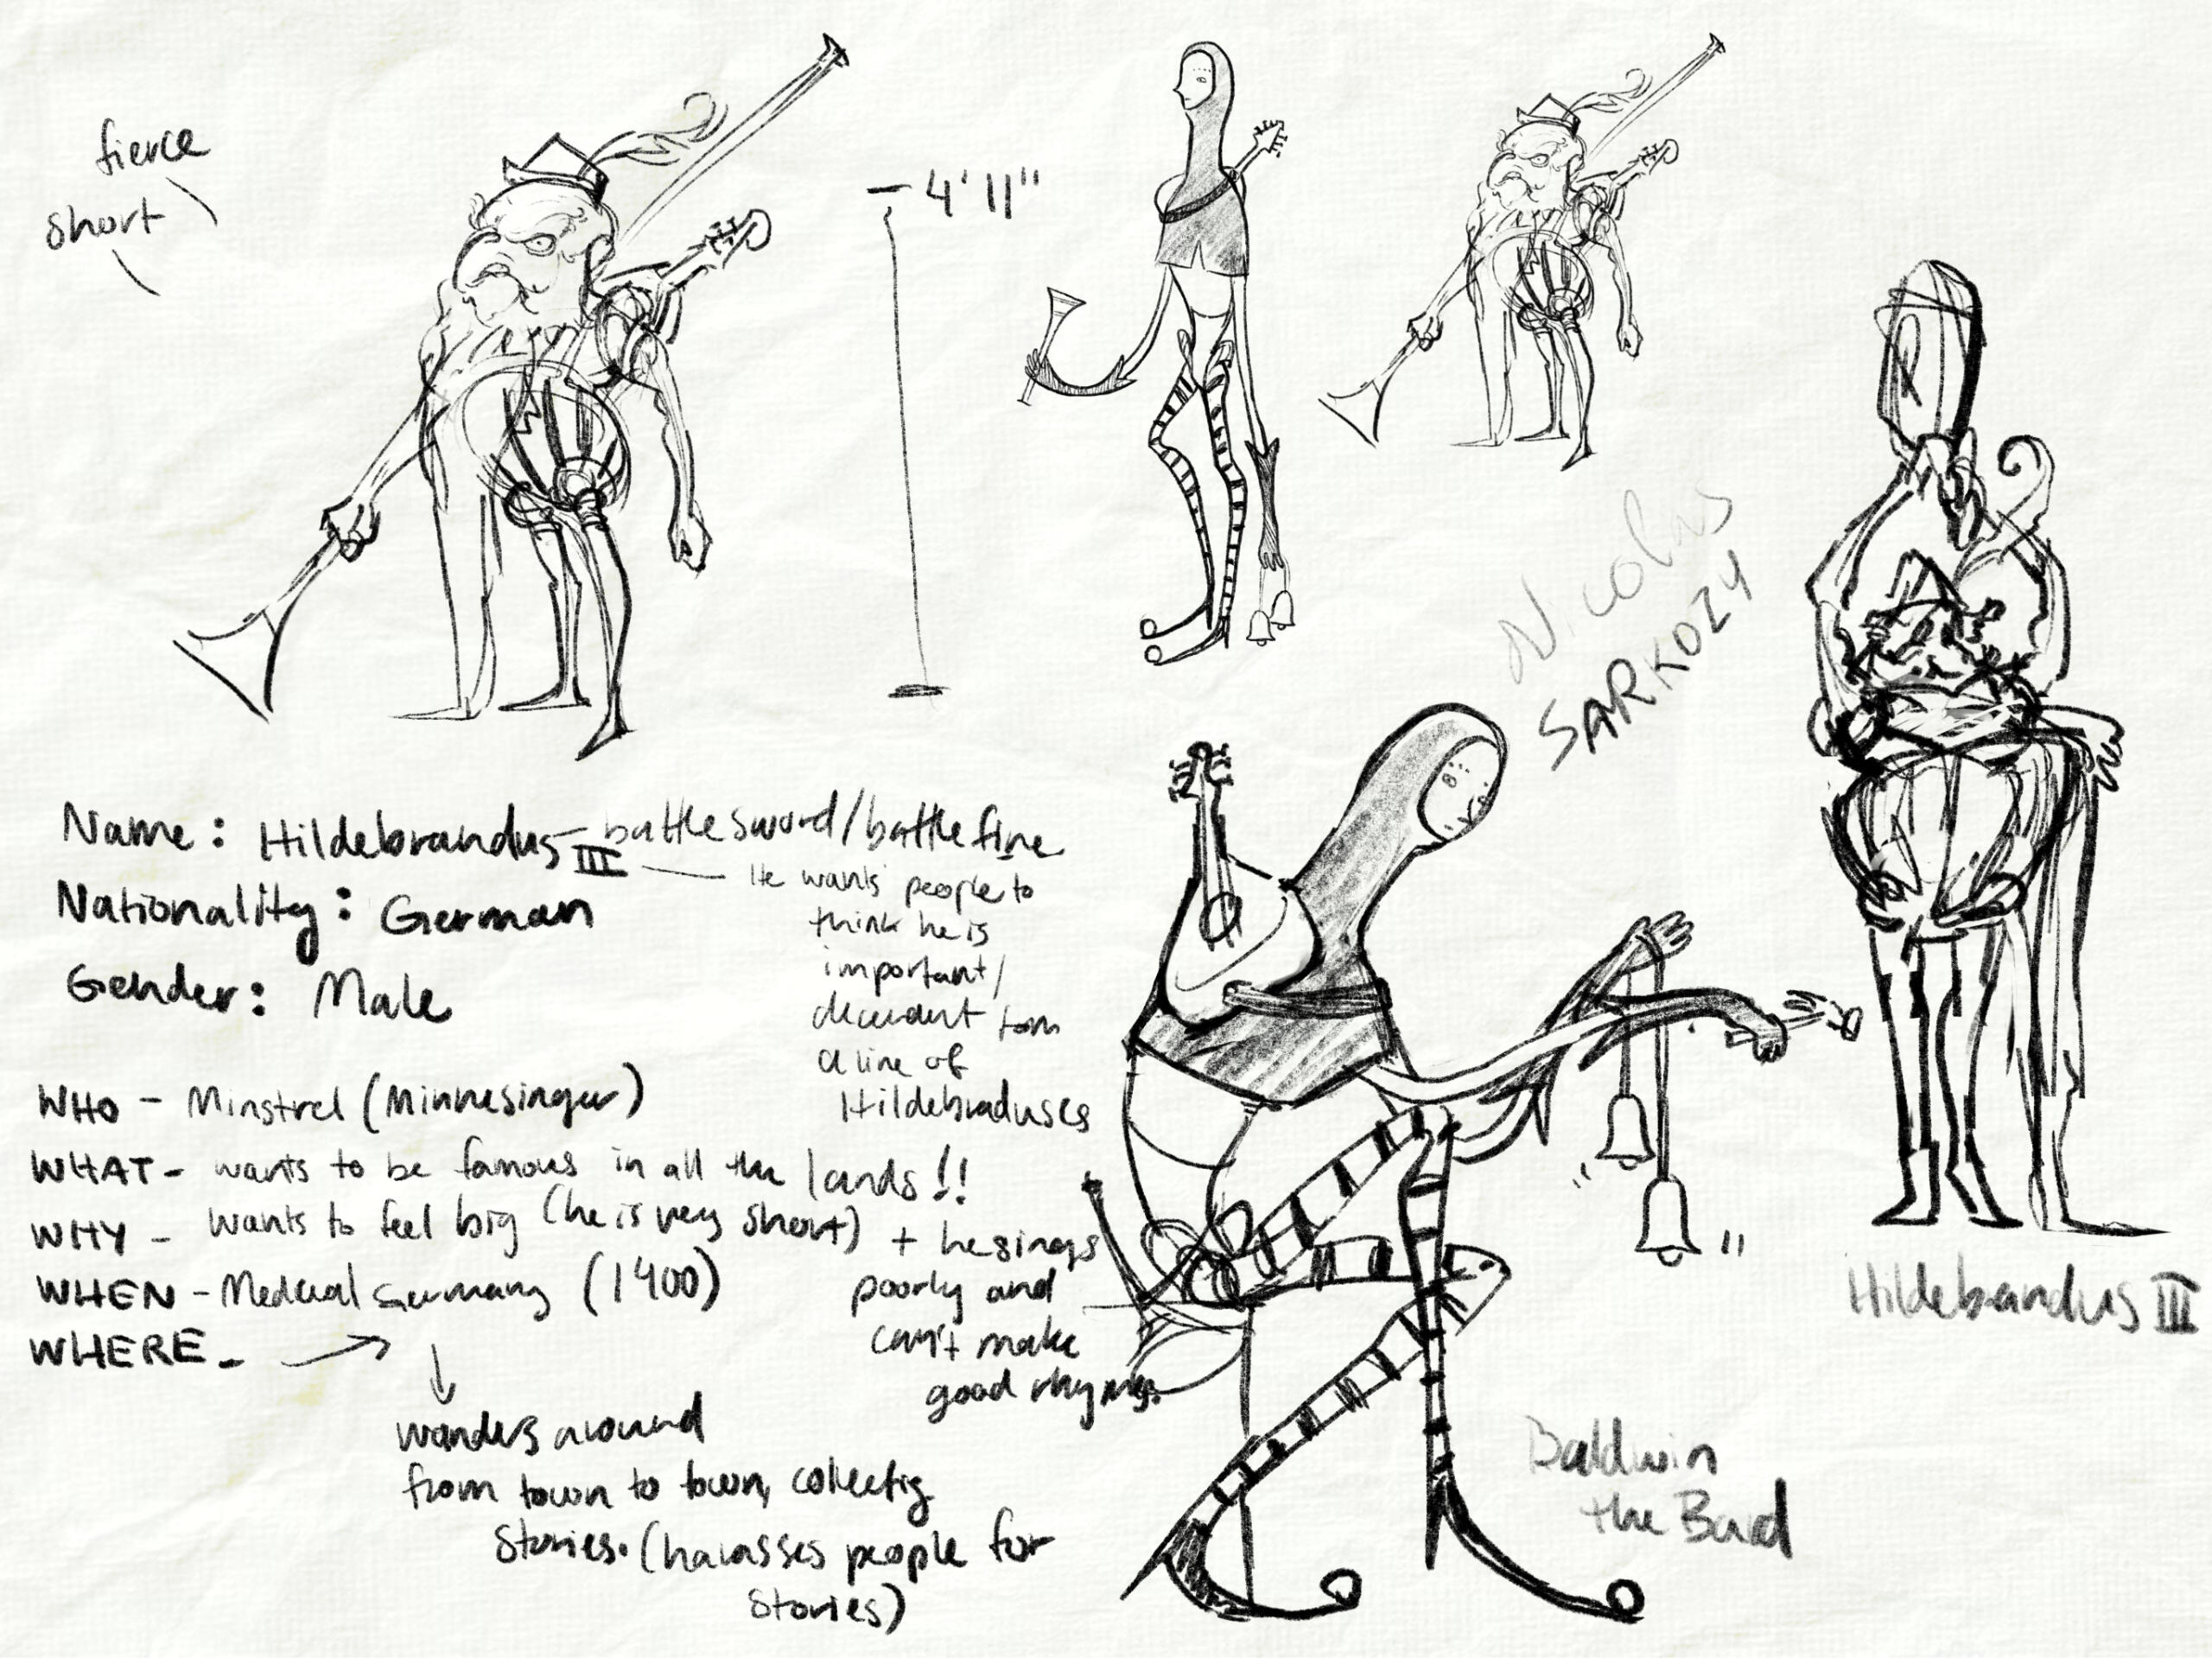 fierce
short
4'11"
Nicolas
SARKOZY
Name: Hildebrandus III – battle sword/battle fire
He wants people to
think he is
important/
decendent from
a line of
Hildebraduses
Nationality: German
Gender: Male
WHO – Minstrel (Minnesinger)
WHAT – wants to be famous in all the lands!!
WHY – wants to feel big (he is very short) + he sings
poorly and
can't make
good rhymes
WHEN – Medieval Germany (1400)
WHERE –
wanders around
from town to town, collectig
stories. (harasses people for
stories)
Hildebrandus III
Baldwin
the Bard